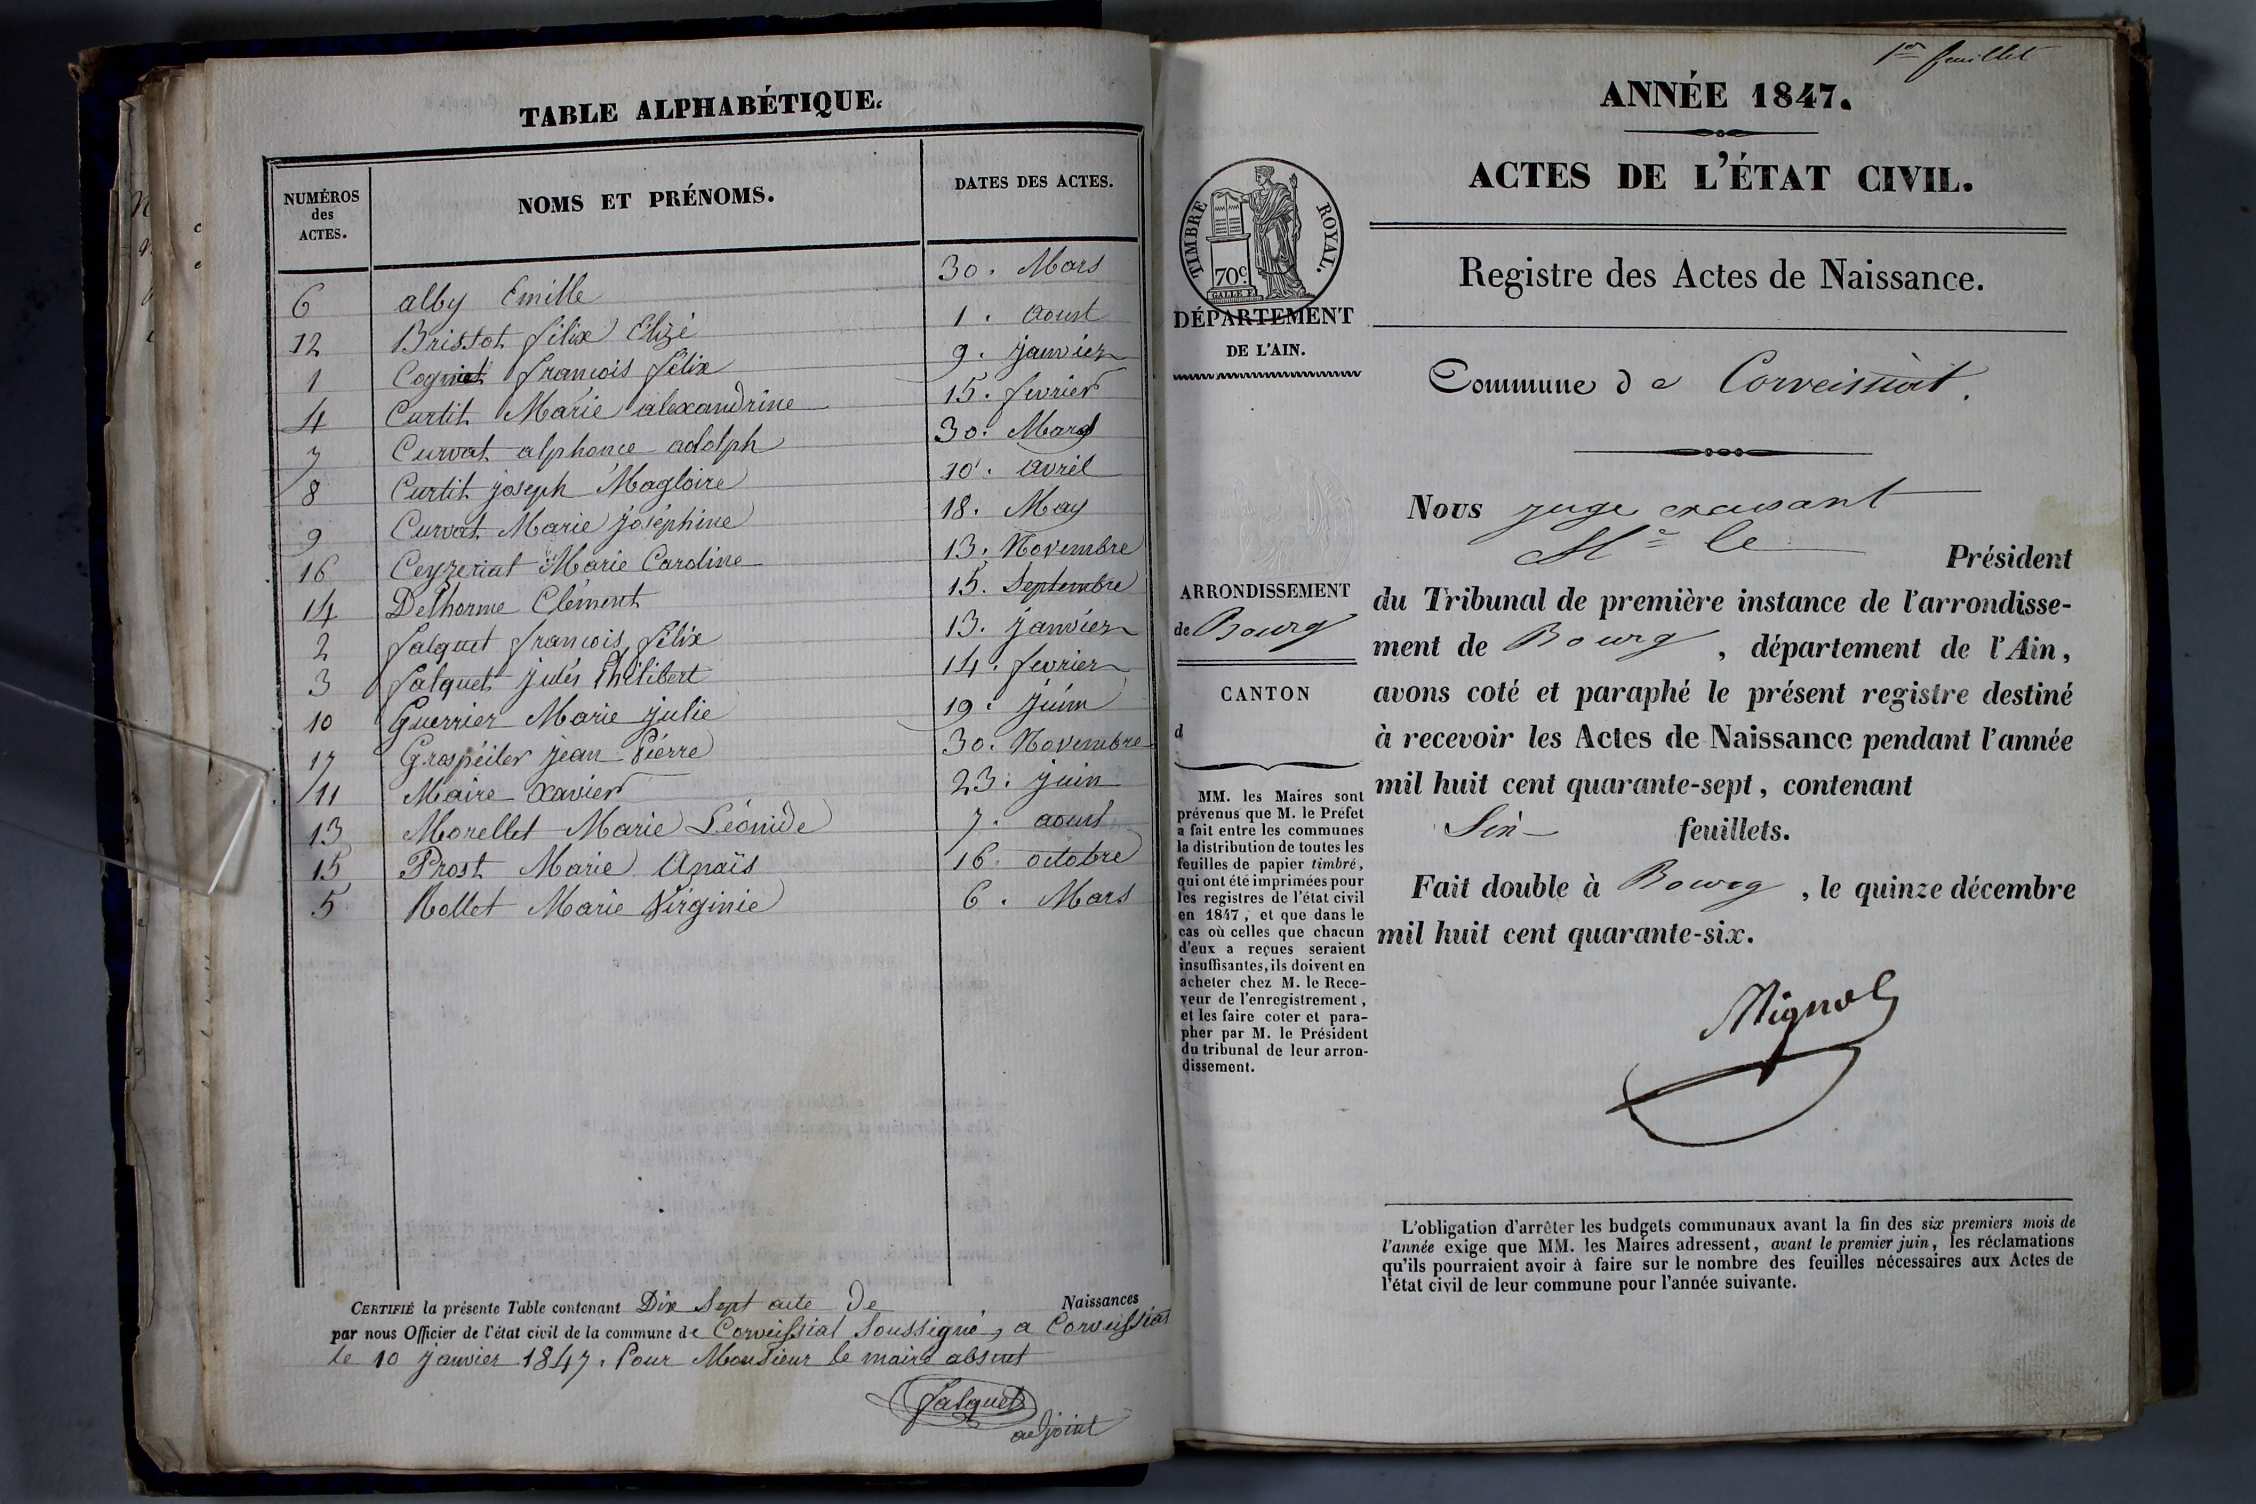 TABLE ALPHABÉTIQUE.
NUMÉROS des ACTES. NOMS ET PRÉNOMS. DATES DES ACTES.
6 alby Emille 30. Mars
12 Bristot félix Elizé 1. aoust
1 Cognat francois félix 9. janvier
4 Curtit Marie alexandrine 15. fevrier
7 Curvat alphonce adolph 30. Mars
8 Curtit joseph Magloire 10. avril
9 Curvat Marie joséphine 18. May
16 Ceyzeriat Marie Caroline 13. Novembre
14 Delhorme Clément 15. Septembre
2 falquet francois félix 13. janvier
3 falquet jules Philibert 14. fevrier
10 Guerrier Marie julie 19. juin
17 Graspéiler jean Pierre 30. Novembre
11 Maire Xavier 23. juin
13 Morellet Marie Léonide 7. aoust
15 Prost Marie Anaïs 16. octobre
5 Rollet Marie Virginie 6. Mars
CERTIFIÉ la présente Table contenant Dix Sept acte de Naissances
par nous Officier de l'état civil de la commune de Corveissiat Soussigné, a Corveissiat
le 10 janvier 1847. Pour Monsieur le maire absent
falquet
adjoint
1er feuillet
ANNÉE 1847.
ACTES DE L'ÉTAT CIVIL.
TIMBRE ROYAL.
70c.
Registre des Actes de Naissance.
DÉPARTEMENT
DE L'AIN.
Commune de Corveissiat.
Nous juge
Mr le Président
ARRONDISSEMENT
de Bourg
CANTON
d
du Tribunal de première instance de l'arrondisse-
ment de Bourg, département de l'Ain,
avons coté et paraphé le présent registre destiné
à recevoir les Actes de Naissance pendant l'année
mil huit cent quarante-sept, contenant
Six feuillets.
Fait double à Bourg, le quinze décembre
mil huit cent quarante-six.
MM. les Maires sont
prévenus que M. le Préfet
a fait entre les communes
la distribution de toutes les
feuilles de papier timbré,
qui ont été imprimées pour
les registres de l'état civil
en 1847, et que dans le
cas où celles que chacun
d'eux a reçues seraient
insuffisantes, ils doivent en
acheter chez M. le Rece-
veur de l'enregistrement,
et les faire coter et para-
pher par M. le Président
du tribunal de leur arron-
dissement.
L'obligation d'arrêter les budgets communaux avant la fin des six premiers mois de
l'année exige que MM. les Maires adressent, avant le premier juin, les réclamations
qu'ils pourraient avoir à faire sur le nombre des feuilles nécessaires aux Actes de
l'état civil de leur commune pour l'année suivante.